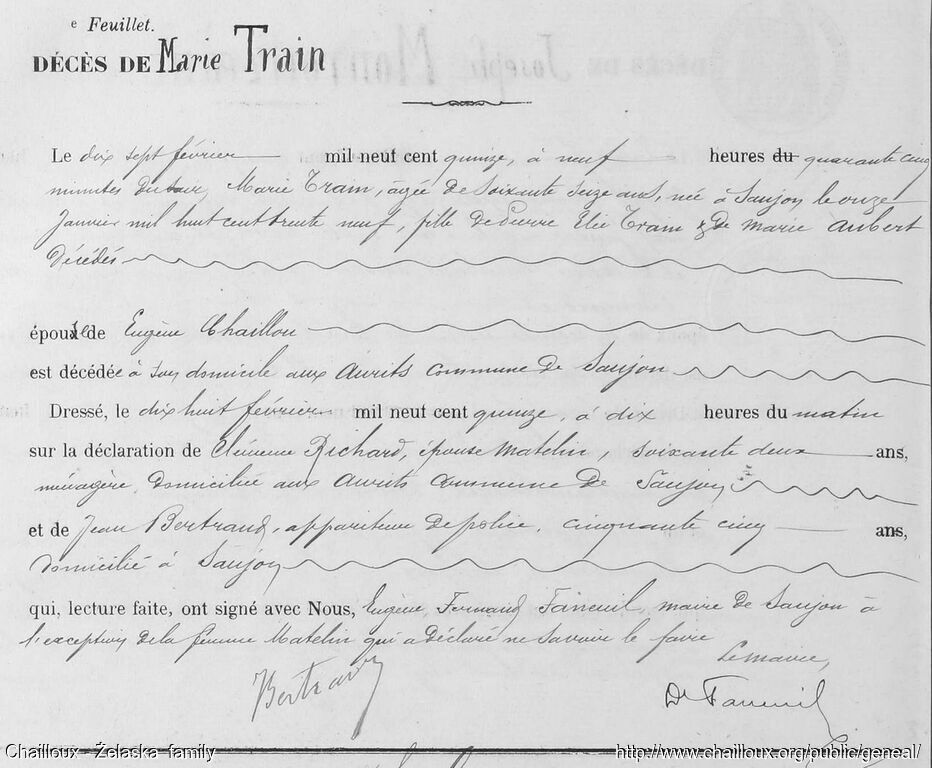 e Feuillet.
DÉCÈS DE Marie Train
Le dix sept février mil neuf cent quinze, à neuf heures du quarante cinq
minutes du soir, Marie Train, agée de soixante seize ans, née à Saujon le onze
Janvier mil huit cent trente neuf, fille de Pierre Elie Train & de Marie Aubert
décédés
épouse de Eugène Chaillou
est décédée à son domicile aux Aurits commune de Saujon
Dressé, le dix huit février mil neuf cent quinze, à dix heures du matin
sur la déclaration de Clémence Richard, épouse Matelin, soixante deux ans,
ménagère, domiciliée aux Aurits commune de Saujon
et de Jean Bertrand, appariteur de police, cinquante cinq ans,
domicilié à Saujon
qui, lecture faite, ont signé avec Nous, Eugène, Fernand Faneuil, maire de Saujon à
l'exception de la femme Matelin qui a déclaré ne savoir le faire
Le maire,
Bertrand
Dr Faneuil
Chailloux - Żelaska family
http://www.chailloux.org/public/geneal/